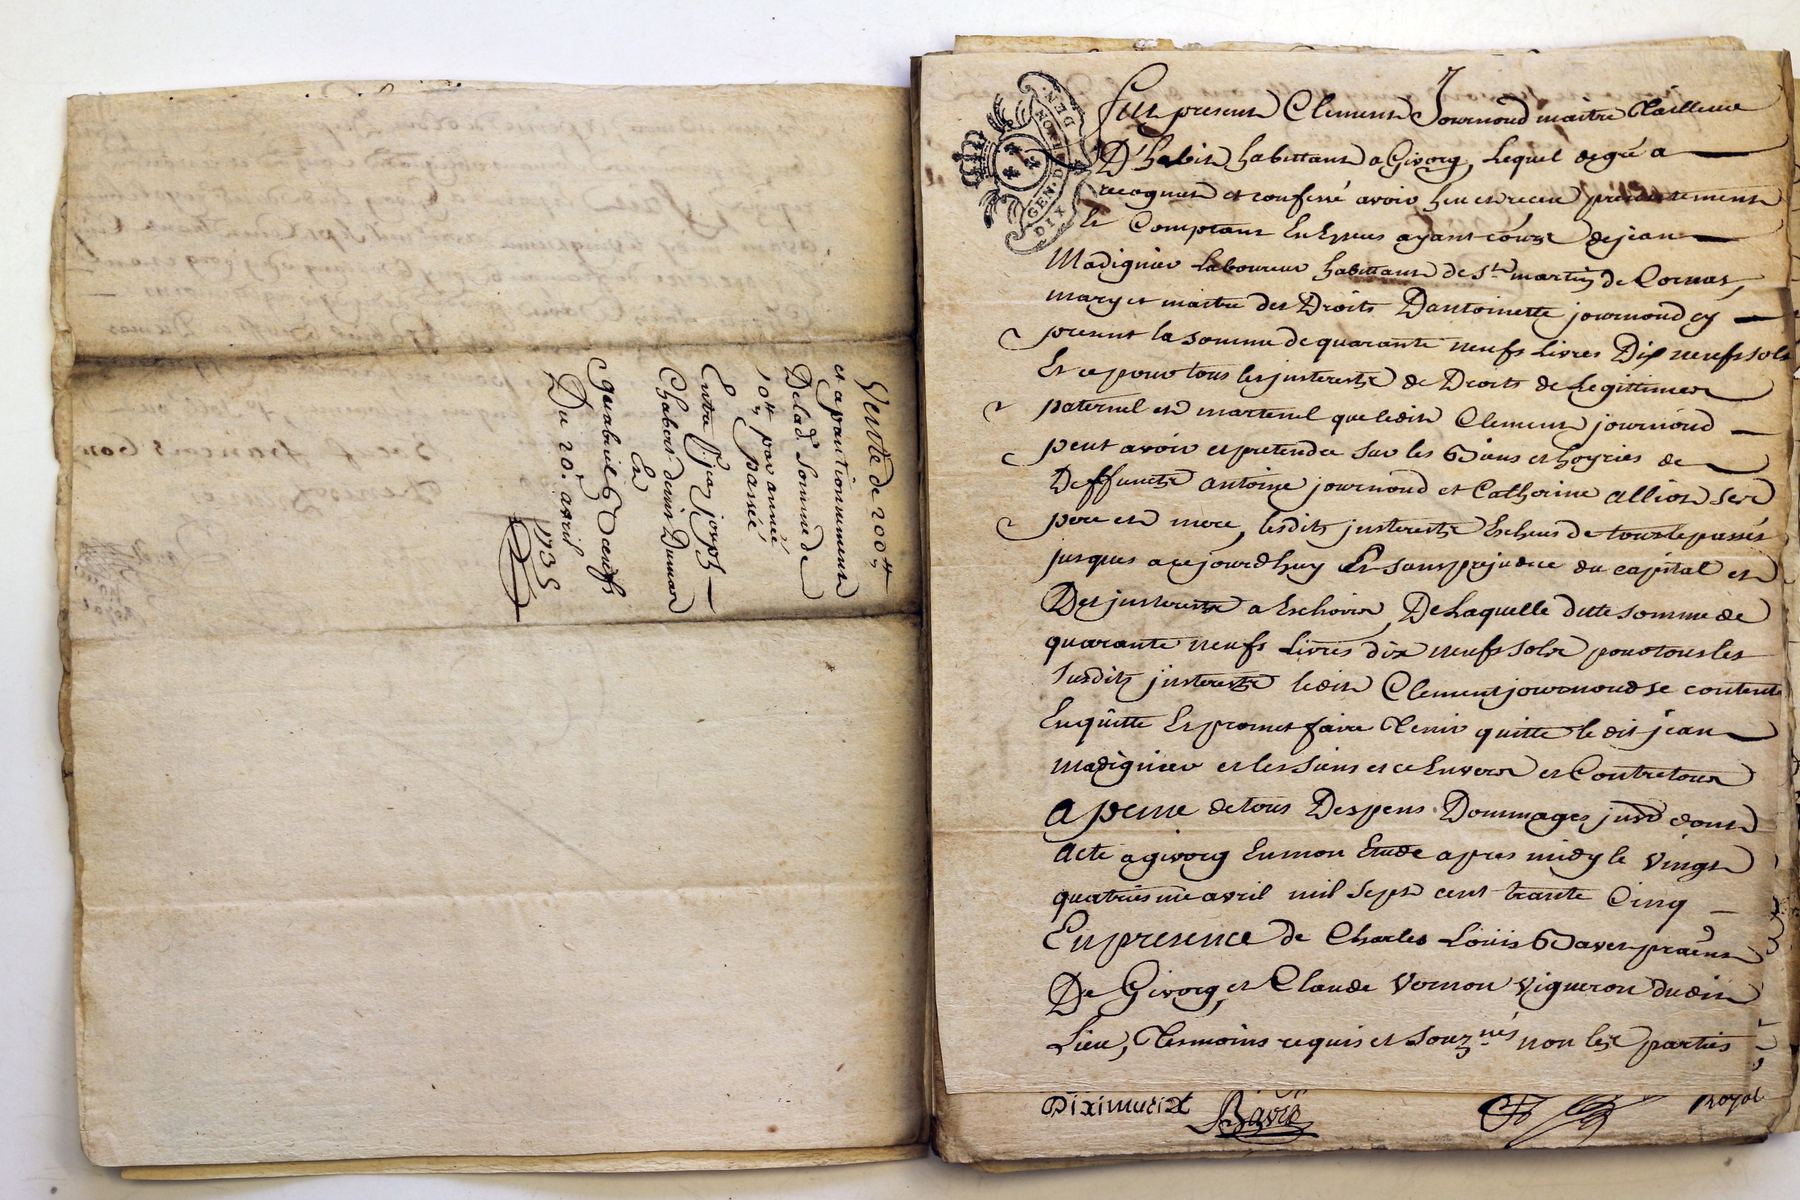 Vente de 200tt
et apantionnement
De lad. somme de
10tt par année
passée
Entre Sr. jean joseph
Chabert denis Dumas
Et
Gabriel
Du 20e. avril
1735
GEN. DE LYON
DIX DEN.
Fut present Clement Journoud maitre Tailleur
D'habit habittant a Givorg, Lequel degré a
recognut et confessé avoir heu et receu presentement
Et Comptant En Especes ayant cours de jean
Madignier Laboureur habittant de St martin de Cornas,
mary et maitre des Droits Dantoinette journoud cy
present la somme de quarante neufs Livres Dix neufs sols
Et ce pour tous les jnterests de Droits de Legittimes
paternel et marternel que ledit Clement journoud
peut avoir et pretendre sur les Biens et hoyries de
Deffuncts antoine journoud et Catherine alliot ses
pere et mere, lesdits jnterests Escheus de tout le passés
jusques a ce jourdhuy Et sans prejudice du capital et
Des jnterests a Eschoir, De Laquelle ditte somme de
quarante neufs Livres dix neufs sols pour tous les
susdits jnterests ledit Clement journoud se contente
En quitte Et promet faire Tenir quitte le dit jean
madignier et les siens et ce Envers et Contre tous
a peine de tous Despens Dommages jnts dont
Acte a givorg En mon Etude apres midy le vingt
quatriesme avril mil sept cent trante Cinq
En presence de Charles Loüis Bavet praen
De Givorg, et Claude Vernon Vigneron dudit
Lieu, Tesmoins requis et souznés non les parties
Royal